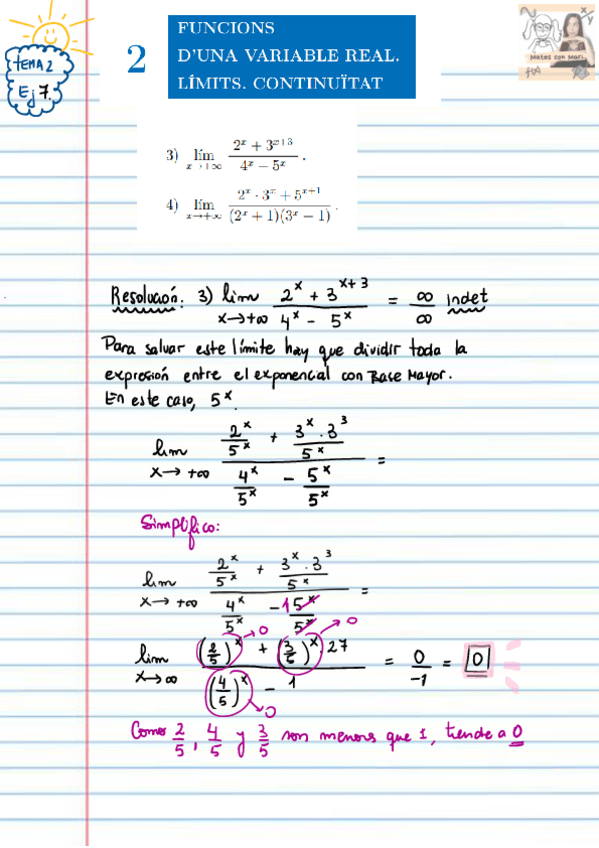 TEMA 2
Ej 7.
2
FUNCIONS
D'UNA VARIABLE REAL.
LÍMITS. CONTINUÏTAT
Mates con Mari
3) lím x→+∞ (2^x + 3^(x+3)) / (4^x − 5^x) .
4) lím x→+∞ (2^x · 3^x + 5^(x+1)) / ((2^x + 1)(3^x − 1)) .
Resolución: 3) lim x→+∞ (2^x + 3^(x+3)) / (4^x − 5^x) = ∞/∞ indet
Para salvar este límite hay que dividir toda la
expresión entre el exponencial con Base Mayor.
En este caso, 5^x
lim x→+∞ (2^x/5^x + 3^x · 3^3/5^x) / (4^x/5^x − 5^x/5^x) =
Simplifico:
lim x→+∞ (2^x/5^x + 3^x · 3^3/5^x) / (4^x/5^x − 1 5^x/5^x) =
lim x→∞ ((2/5)^x →0 + (3/5)^x →0 27) / ((4/5)^x →0 − 1) = 0/-1 = 0
Como 2/5, 4/5 y 3/5 son menors que 1, tiende a 0